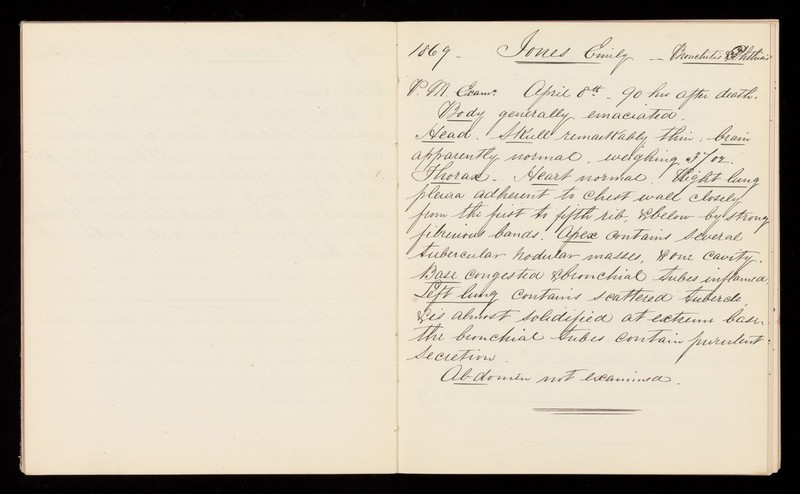 1869 - Jones Emily - Bronchitis & Phthisis
P.M. Exam: April 8th - 90 hrs after death.
Body generally emaciated.
Head. Skull remarkably thin: brain
apparently normal, weighing 37 oz.
Thorax - Heart normal. Right lung
pleura adherent to chest wall closely
from the first to fifth rib, & below by strong
fibrinous bands. Apex contains several
tubercular nodular masses, & one cavity.
Base congested & bronchial tubes inflamed.
Left lung contains scattered tubercle,
& is almost solidified at extreme base.
the bronchial tubes contain purulent
secretion.
Abdomen not examined.